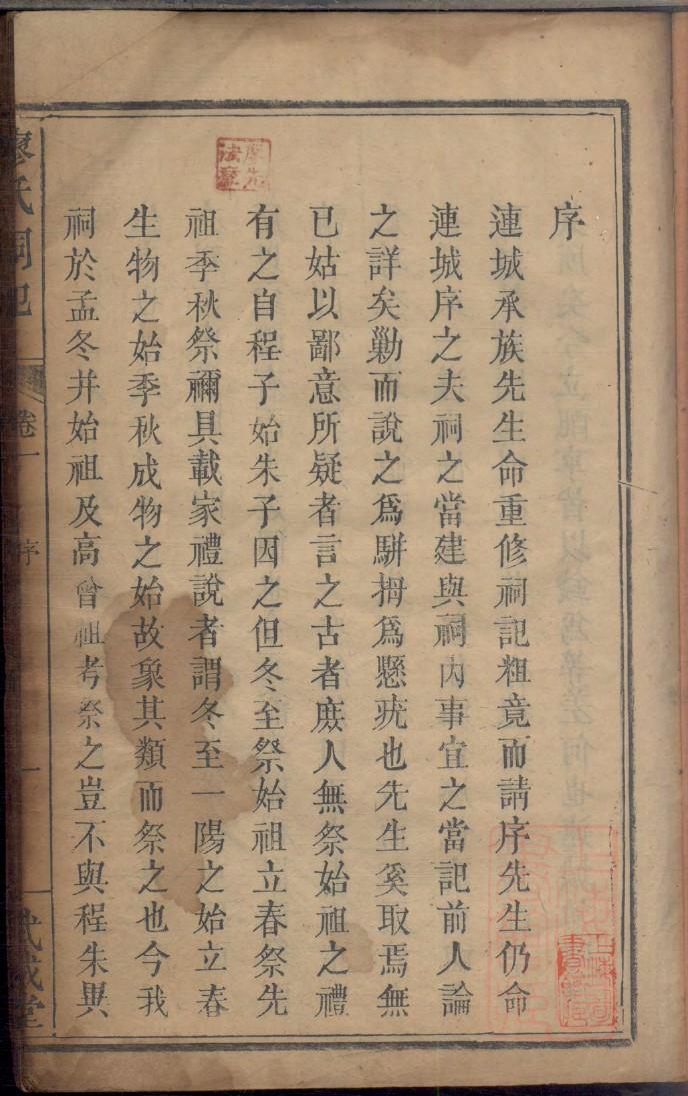 序
連城承族先生命重修祠記粗竟而請序先生仍命
連城序之夫祠之當建與祠内事宜之當記前人論
之詳矣勦而說之爲駢拇爲懸疣也先生奚取焉無
已姑以鄙意所疑者言之古者庶人無祭始祖之禮
有之自程子始朱子因之但冬至祭始祖立春祭先
祖季秋祭禰具載家禮說者謂冬至一陽之始立春
生物之始季秋成物之始故象其類而祭之也今我
祠於孟冬并始祖及高曾祖考祭之豈不與程朱異
廖氏祠記
卷一
序
一
武威堂